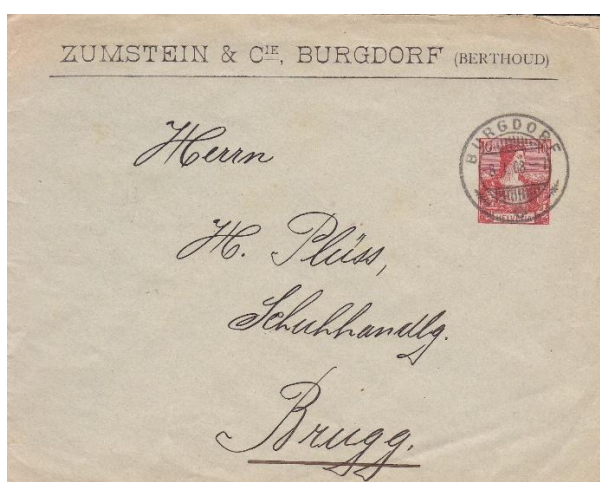 ZUMSTEIN & CIE, BURGDORF (BERTHOUD)
BURGDORF
Herrn
H. Plüss,
Schuhhandlg.
Brugg.